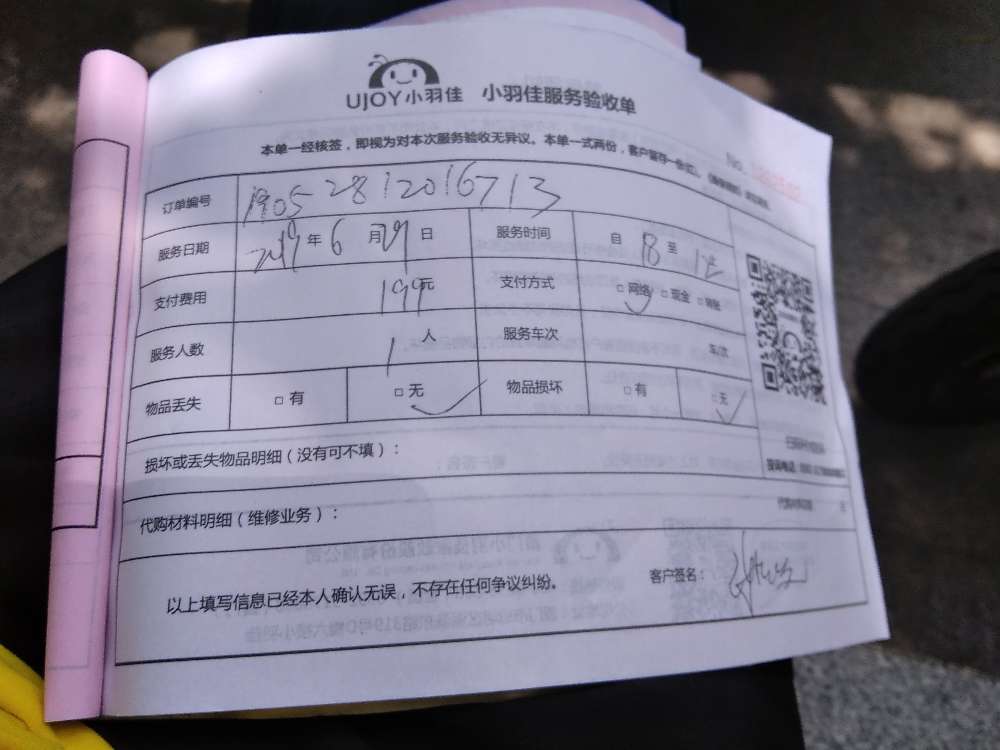 UJOY小羽佳 小羽佳服务验收单
本单一经核签，即视为对本次服务验收无异议。本单一式两份，客户留存一份
No.
订单编号 19052812016713
服务日期 2019年6月29日 服务时间 自 18 至
支付费用 199元 支付方式 □网络 □现金 □转账
服务人数 1人 服务车次 车/次
物品丢失 □有 □无 物品损坏 □有 □无
损坏或丢失物品明细（没有可不填）：
代购材料明细（维修业务）：
以上填写信息已经本人确认无误，不存在任何争议纠纷。 客户签名：